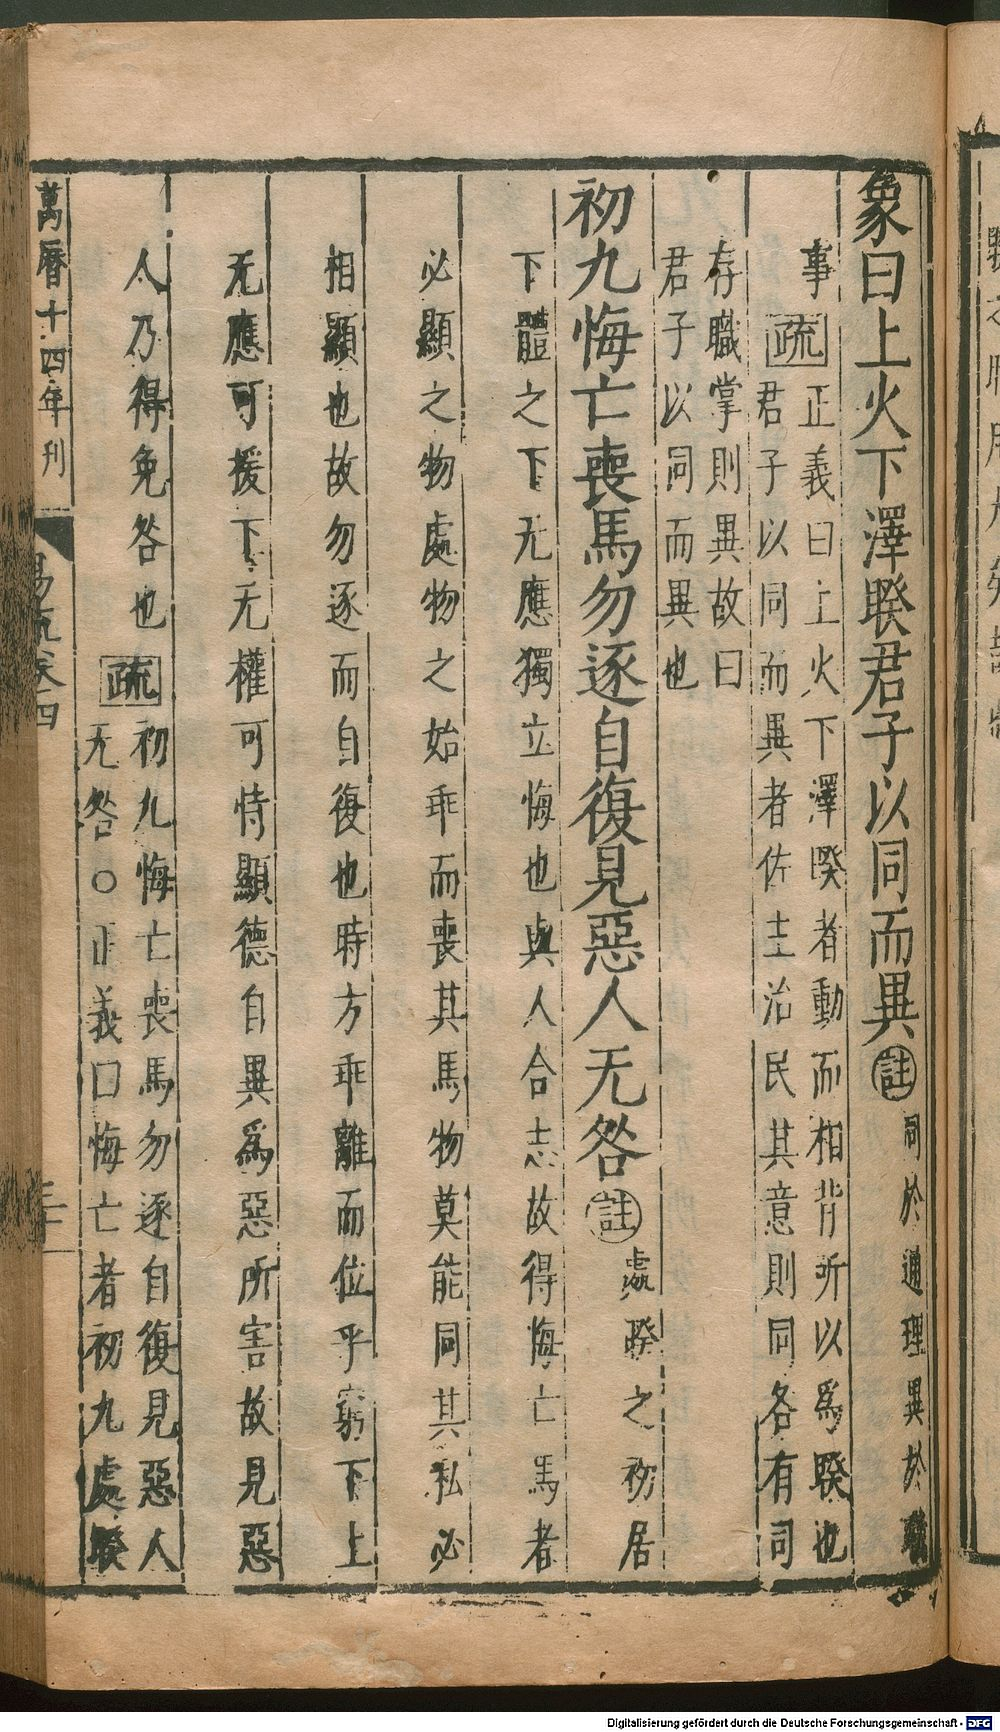 象曰上火下澤睽君子以同而異註同於通理異於職
事疏正義曰上火下澤睽者動而相背所以爲睽也
君子以同而異者佐主治民其意則同各有司
存職掌則異故曰
君子以同而異也
初九悔亡喪馬勿逐自復見惡人无咎註處睽之初居
下體之下无應獨立悔也與人合志故得悔亡馬者
必顯之物處物之始乖而喪其馬物莫能同其私必
相顯也故勿逐而自復也時方乖離而位乎窮下上
无應可援下无權可恃顯德自異爲惡所害故見惡
人乃得免咎也疏初九悔亡喪馬勿逐自復見惡人
无咎○正義曰悔亡者初九處睽
萬曆十四年刊
易疏卷四
Digitalisierung gefördert durch die Deutsche Forschungsgemeinschaft - DFG